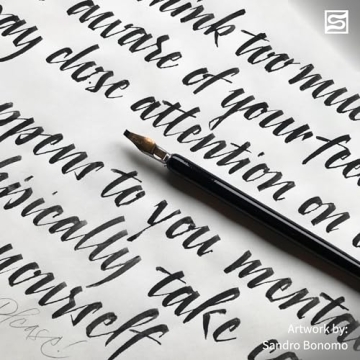 think too much
aware of your feel
pay close attention on
happens to you menta
physically take
yourself
Please!
Artwork by:
Sandro Bonomo